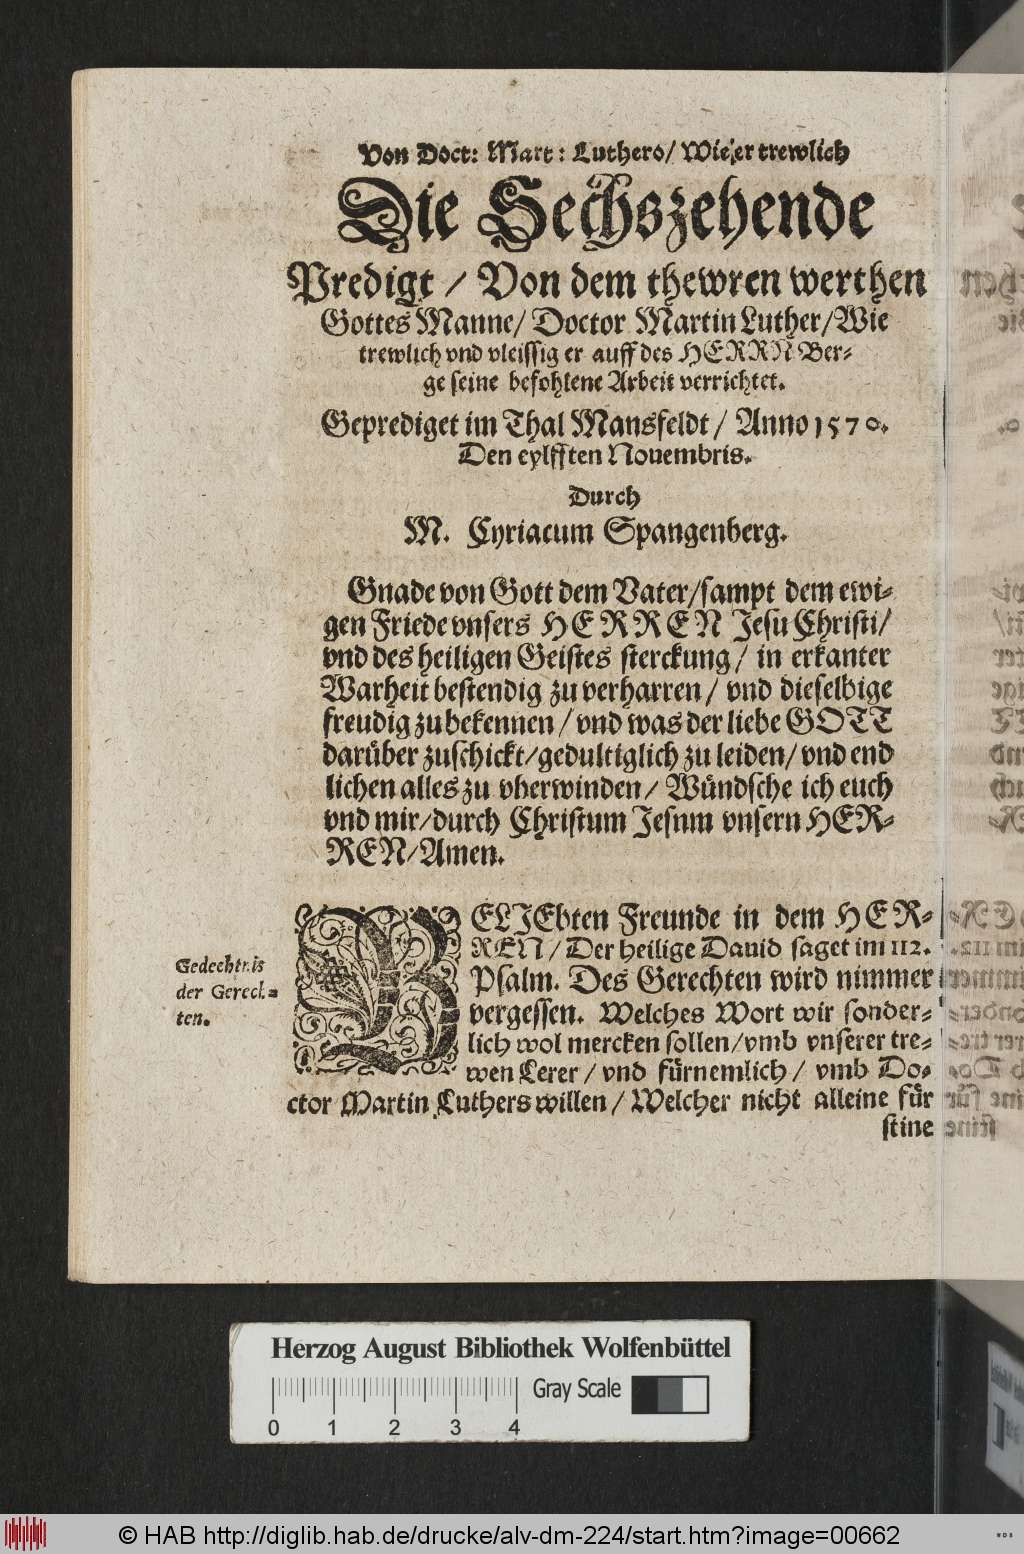 Von Doct: Mart: Luthero/ Wie er trewlich
Die Sechszehende
Predigt / Von dem thewren werthen
Gottes Manne/ Doctor Martin Luther/ Wie
trewlich vnd vleissig er auff des HERRN Ber-
ge seine befohlene Arbeit verrichtet.
Geprediget im Thal Mansfeldt / Anno 1570.
Den eylfften Nouembris.
Durch
M. Cyriacum Spangenberg.
Gnade von Gott dem Vater/ sampt dem ewi-
gen Friede vnsers HERREN Jesu Christi/
vnd des heiligen Geistes sterckung/ in erkanter
Warheit bestendig zu verharren / vnd dieselbige
freudig zubekennen / vnd was der liebe GOTT
darüber zuschickt/ gedultiglich zu leiden/ vnd end
lichen alles zu vberwinden / Wündsche ich euch
vnd mir/ durch Christum Jesum vnsern HER-
REN/ Amen.
Gedechtnis
der Gerech-
ten.
BELIEbten Freunde in dem HER-
REN / Der heilige Dauid saget im 112.
Psalm. Des Gerechten wird nimmer
vergessen. Welches Wort wir sonder-
lich wol mercken sollen/ vmb vnserer tre-
wen Lerer / vnd fürnemlich / vmb Do-
ctor Martin Luthers willen / Welcher nicht alleine für
seine
Herzog August Bibliothek Wolfenbüttel
Gray Scale
0 1 2 3 4
© HAB http://diglib.hab.de/drucke/alv-dm-224/start.htm?image=00662